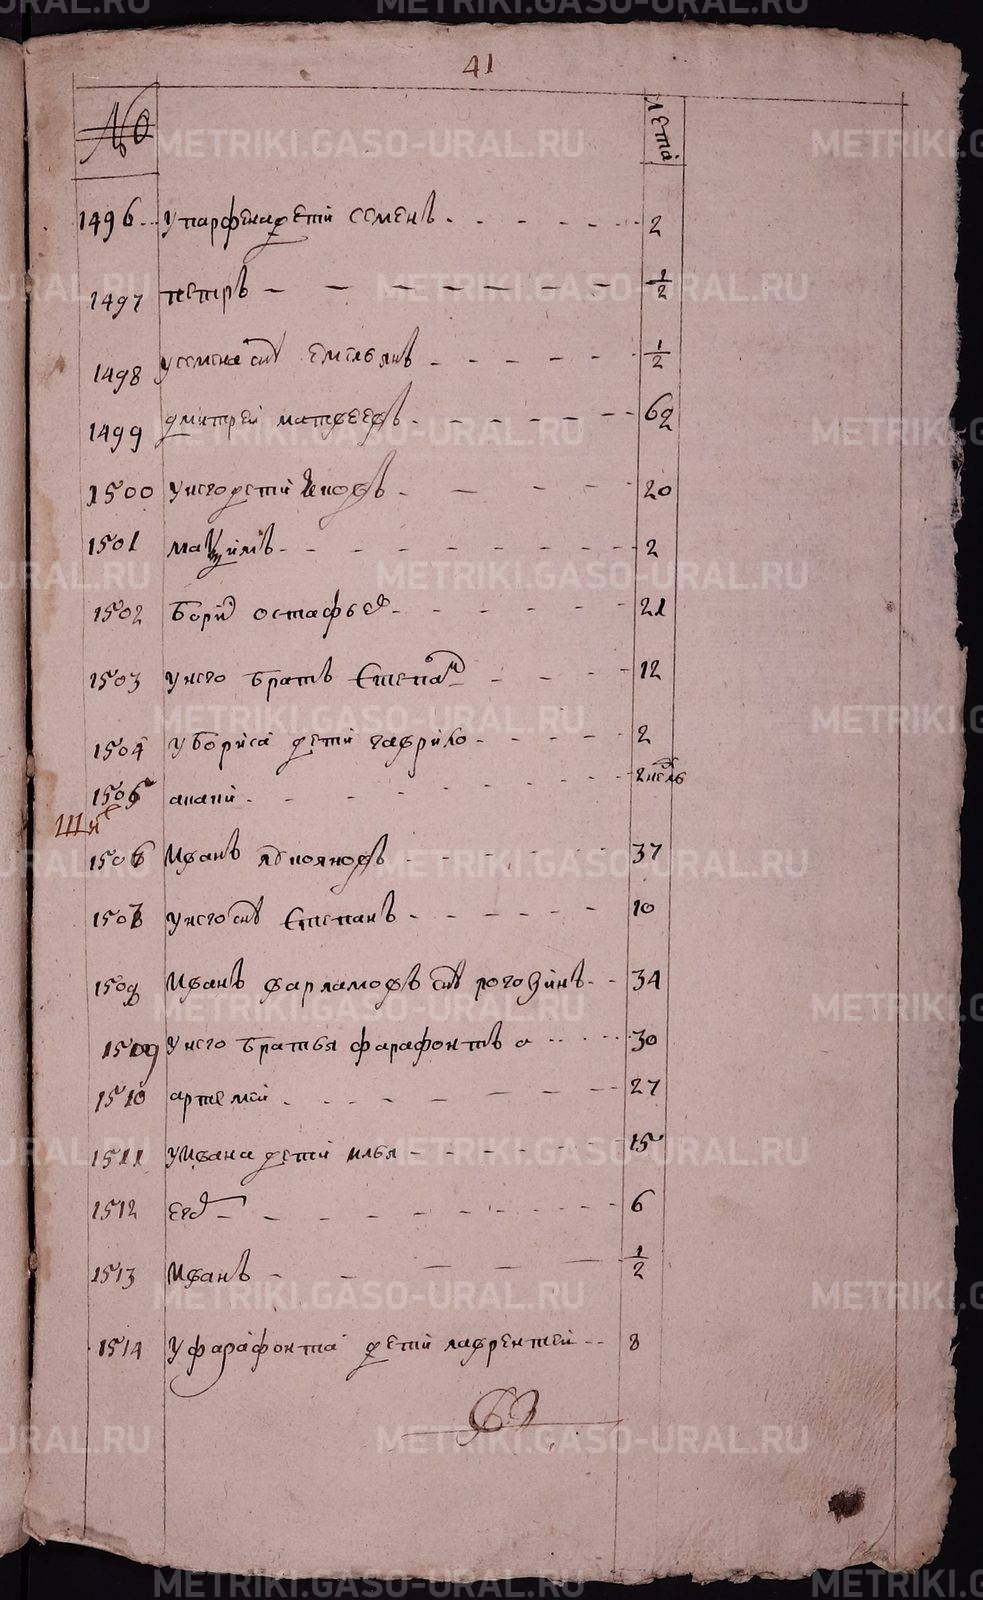 41
№ лета
1496 У парфена дети семенъ 2
1497 петръ 1/2
1498 у семена снъ емельянъ 1/2
1499 дмитрей матвеевъ 62
1500 у него дети 20
1501 максимъ 2
1502 борис остафьев 21
1503 у него братъ степан 12
1504 у бориса дети гаврило 2
1505 анани 2 недель
1506 Иванъ 37
1507 у него снъ степанъ 10
1508 Иванъ варламовъ снъ рогозинъ 34
1509 у него братья фарафонтъ 30
1510 артемей 27
1511 у Ивана дети илья 15
1512 егор 6
1513 Иванъ 1/2
1514 У фарафонта дети лаврентей 8
METRIKI.GASO-URAL.RU